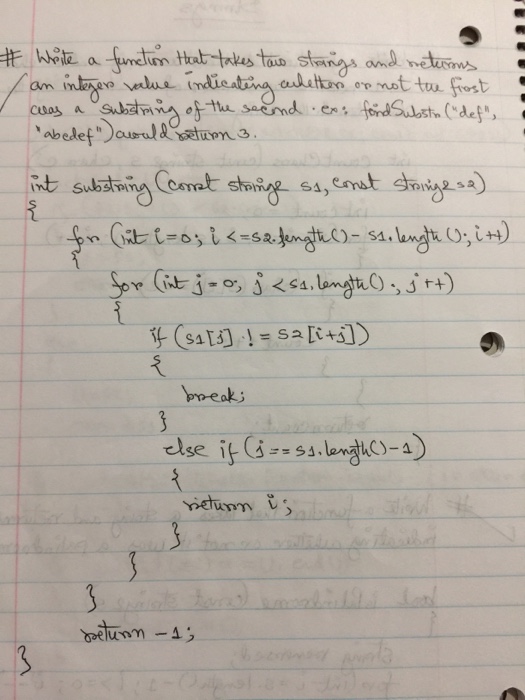 # Write a function that takes two strings and returns
an integer value indicating whether or not the first
was a substring of the second. ex: findSubstr("def",
"abcdef") would return 3.
int substring (const string& s1, const string& s2)
{
for (int i=0; i <=s2.length() - s1.length(); i++)
{
for (int j=0; j <s1.length(); j++)
{
if (s1[j] != s2[i+j])
{
break;
}
else if (j == s1.length()-1)
{
return i;
}
}
}
return -1;
}